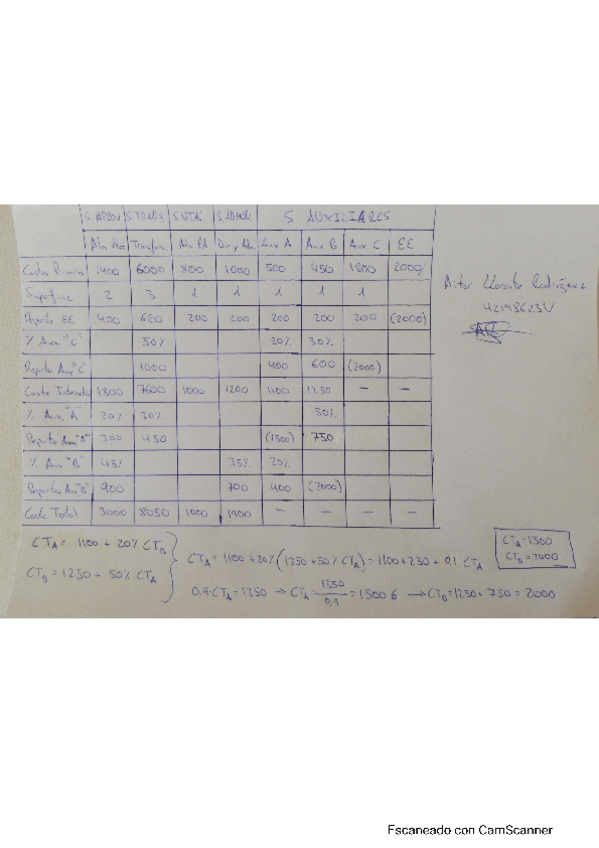 S. APROV S. TRANS S. VTAS S. ADMON S AUXILIARES
Alm Mat Transform. Alm PA Dir y Adm Aux A Aux B Aux C EE
Costes Primario 1400 6000 800 1000 500 450 1800 2000
Superficie 2 3 1 1 1 1 1
Reparto EE 400 600 200 200 200 200 200 (2000)
% Aux "C" 50% 20% 30%
Reparto Aux "C" 1000 400 600 (2000)
Coste Intermedio 1800 7600 1000 1200 1100 1250 — —
% Aux "A" 20% 30% 50%
Reparto Aux "A" 300 450 (1500) 750
% Aux "B" 45% 35% 20%
Reparto Aux "B" 900 700 400 (2000)
Coste Total 3000 8050 1000 1900 — — — —
Aitor Llorente Rodríguez
42198623V
CTA = 1100 + 20% CTB
CTB = 1250 + 50% CTA
CTA = 1100 + 20% (1250 + 50% CTA) = 1100 + 250 + 0,1 · CTA
0.9 · CTA = 1350 → CTA = 1350 / 0,9 = 1500 € → CTB = 1250 + 750 = 2000
CTA = 1500
CTB = 2000
Escaneado con CamScanner